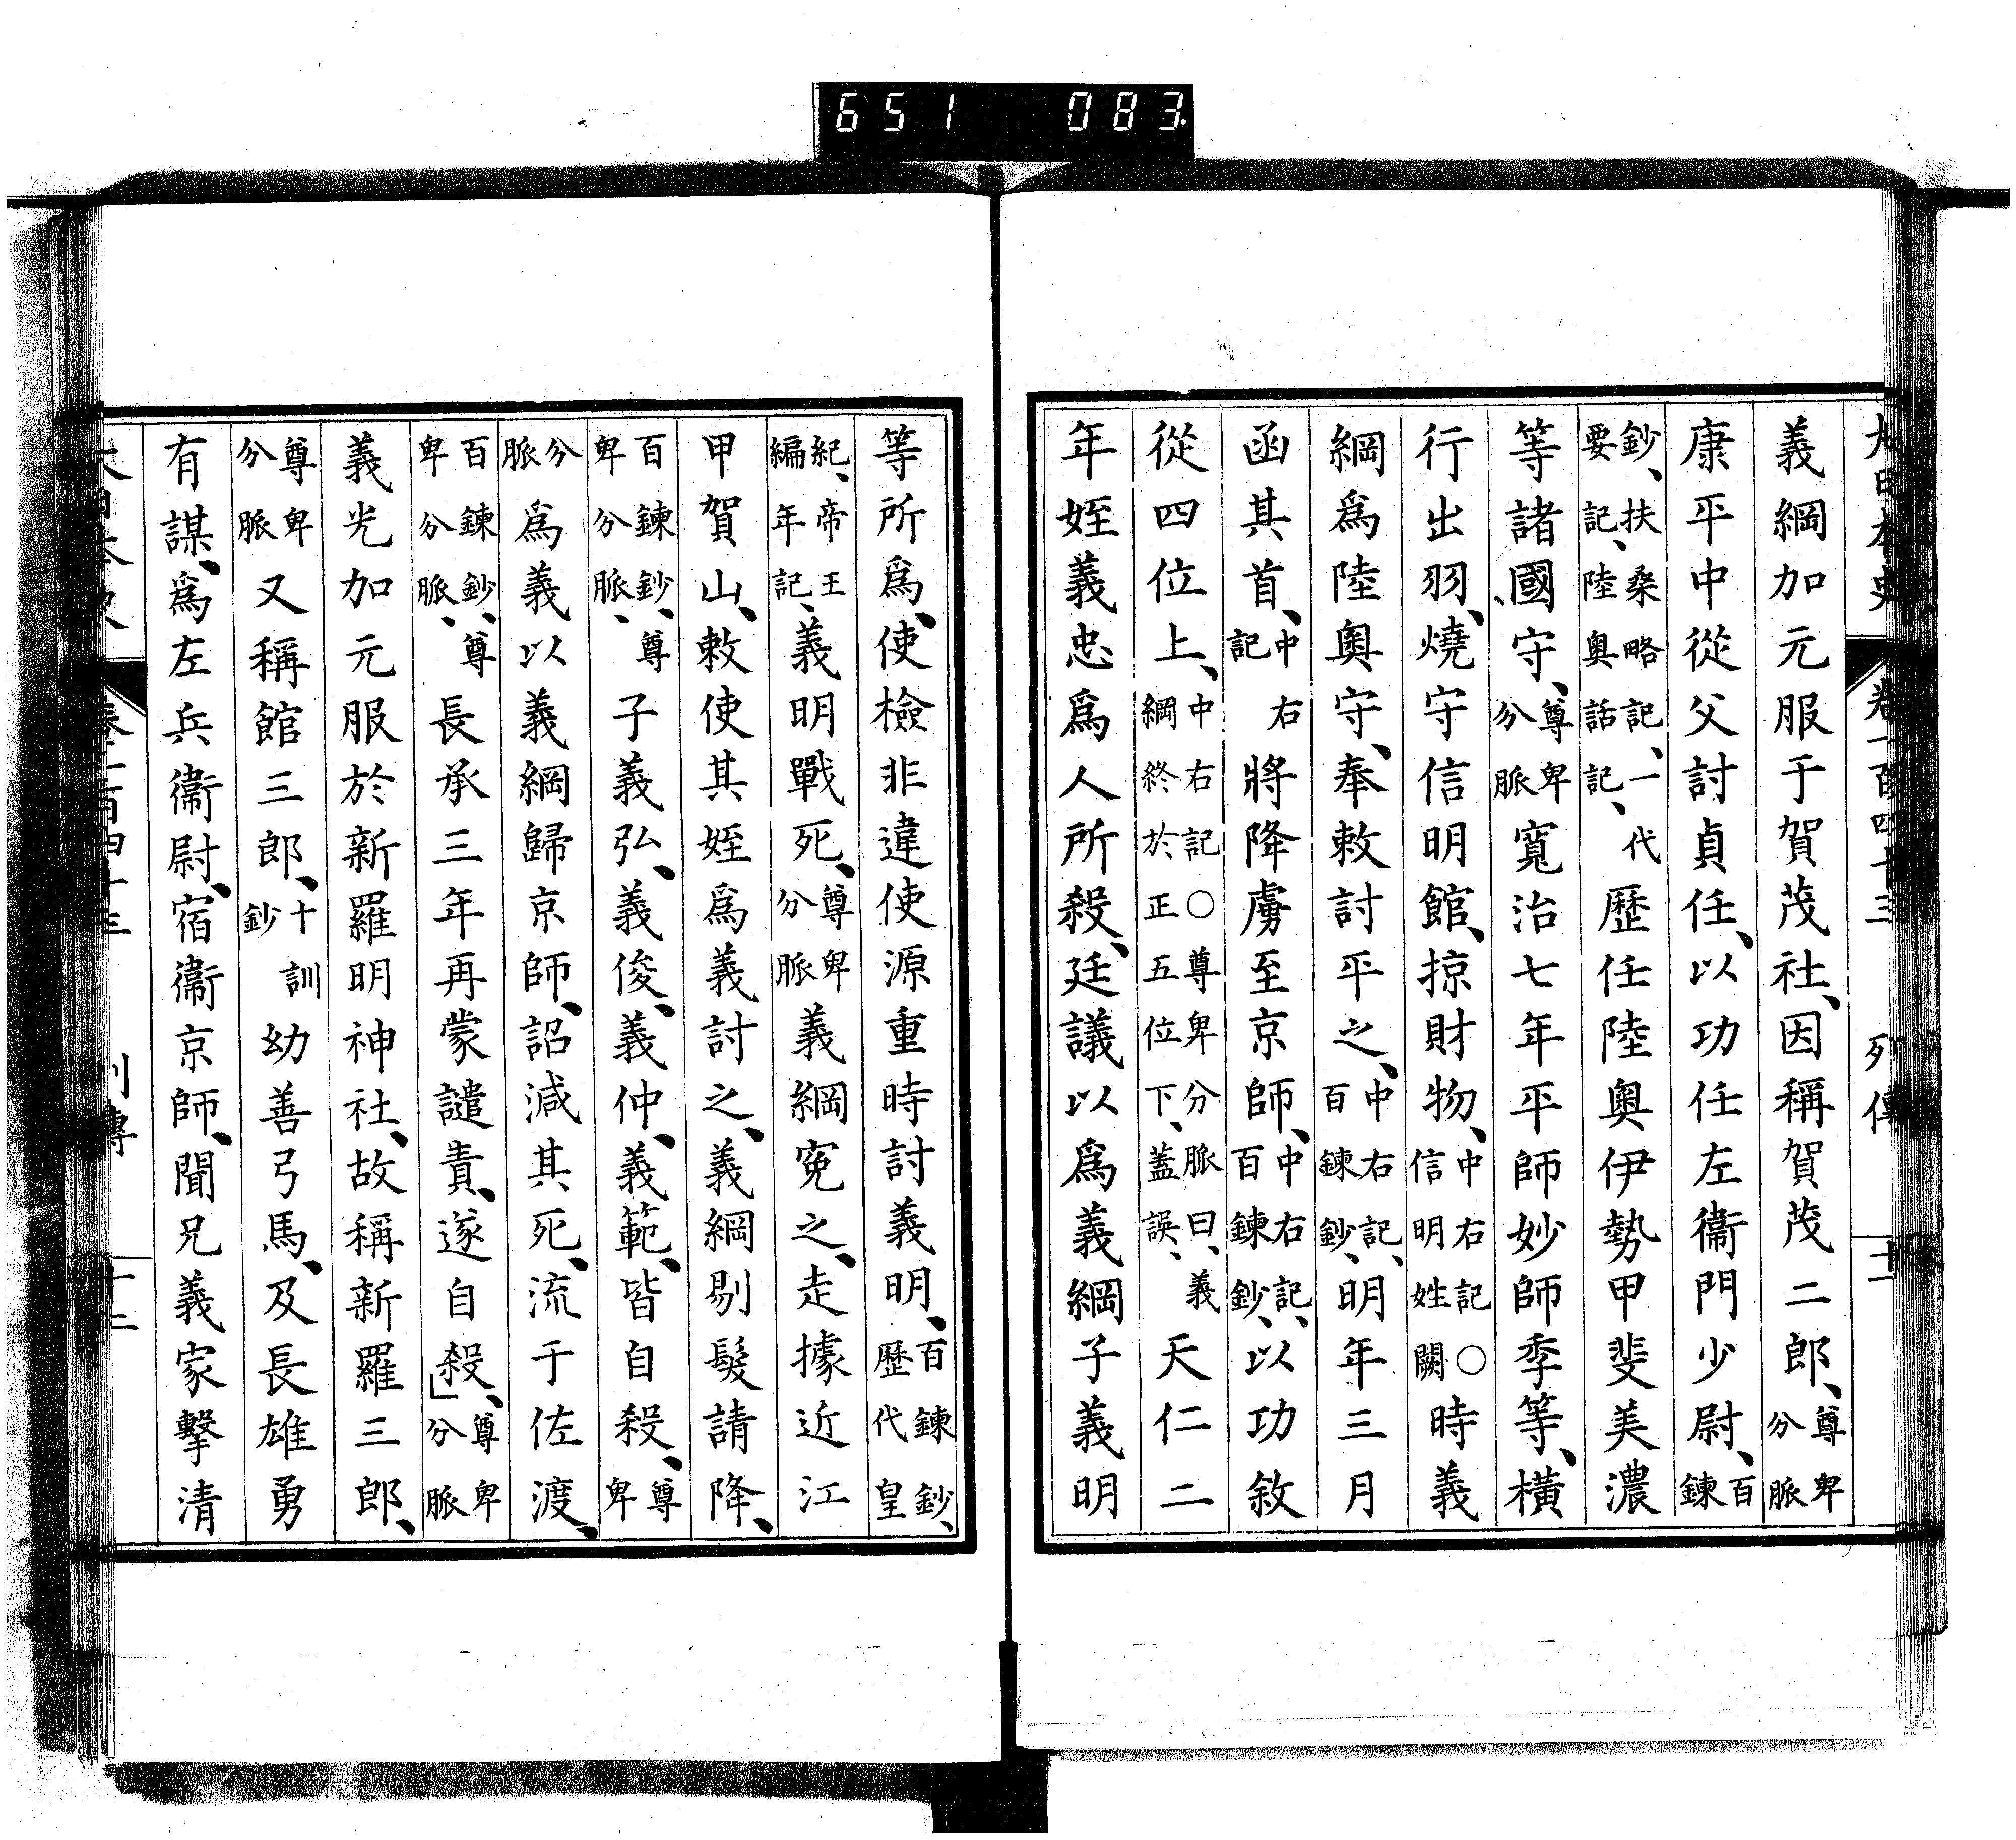 651 083
大日本史 卷一百四十三 列傳 十一
義綱加元服于賀茂社、因稱賀茂二郎、尊卑分脈
康平中從父討貞任、以功任左衞門少尉、百鍊
鈔、扶桑略記、一代要記、陸奧話記、歷任陸奧伊勢甲斐美濃
等諸國守、尊卑分脈寬治七年平師妙師季等、橫
行出羽、燒守信明館、掠財物、中右記○信明姓闕時義
綱爲陸奧守、奉敕討平之、中右記、百鍊鈔、明年三月
函其首、中右記將降虜至京師、中右記、百鍊鈔、以功敘
從四位上、中右記○尊卑分脈曰、義綱終於正五位下、蓋誤、天仁二
年姪義忠爲人所殺、廷議以爲義綱子義明
等所爲、使檢非違使源重時討義明、百鍊鈔、歷代皇
紀、帝王編年記、義明戰死、尊卑分脈義綱寃之、走據近江
甲賀山、敕使其姪爲義討之、義綱剔髮請降、
百鍊鈔、尊卑分脈、子義弘、義俊、義仲、義範、皆自殺、尊卑
分脈爲義以義綱歸京師、詔減其死、流于佐渡、
百鍊鈔、尊卑分脈、長承三年再蒙譴責、遂自殺、」尊卑分脈
義光加元服於新羅明神社、故稱新羅三郎、
尊卑分脈又稱館三郎、十訓鈔幼善弓馬、及長雄勇
有謀、爲左兵衞尉、宿衞京師、聞兄義家擊清
大日本史 卷一百四十三 列傳 十二